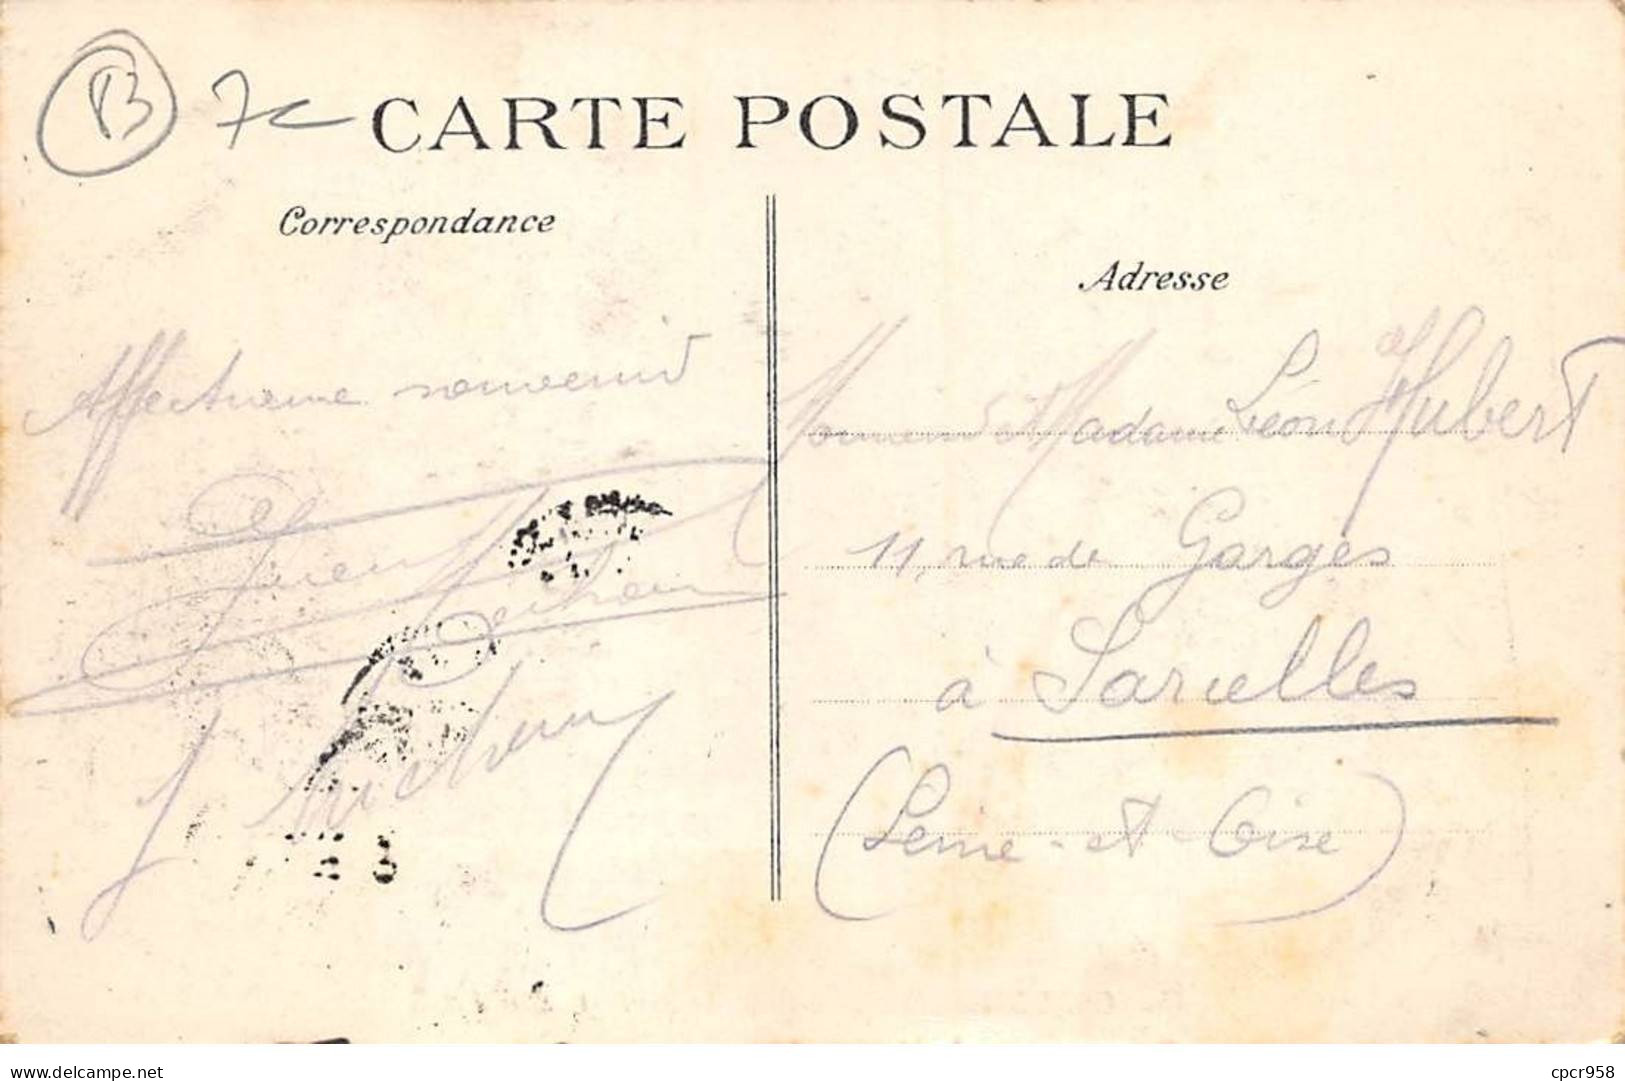 B 7
CARTE POSTALE
Correspondance
Affectueux souvenir
Adresse
Monsieur et Madame Léon Hubert
11, rue de Garges
à Sarcelles
(Seine-et-Oise)
delcampe.net
cpcr958